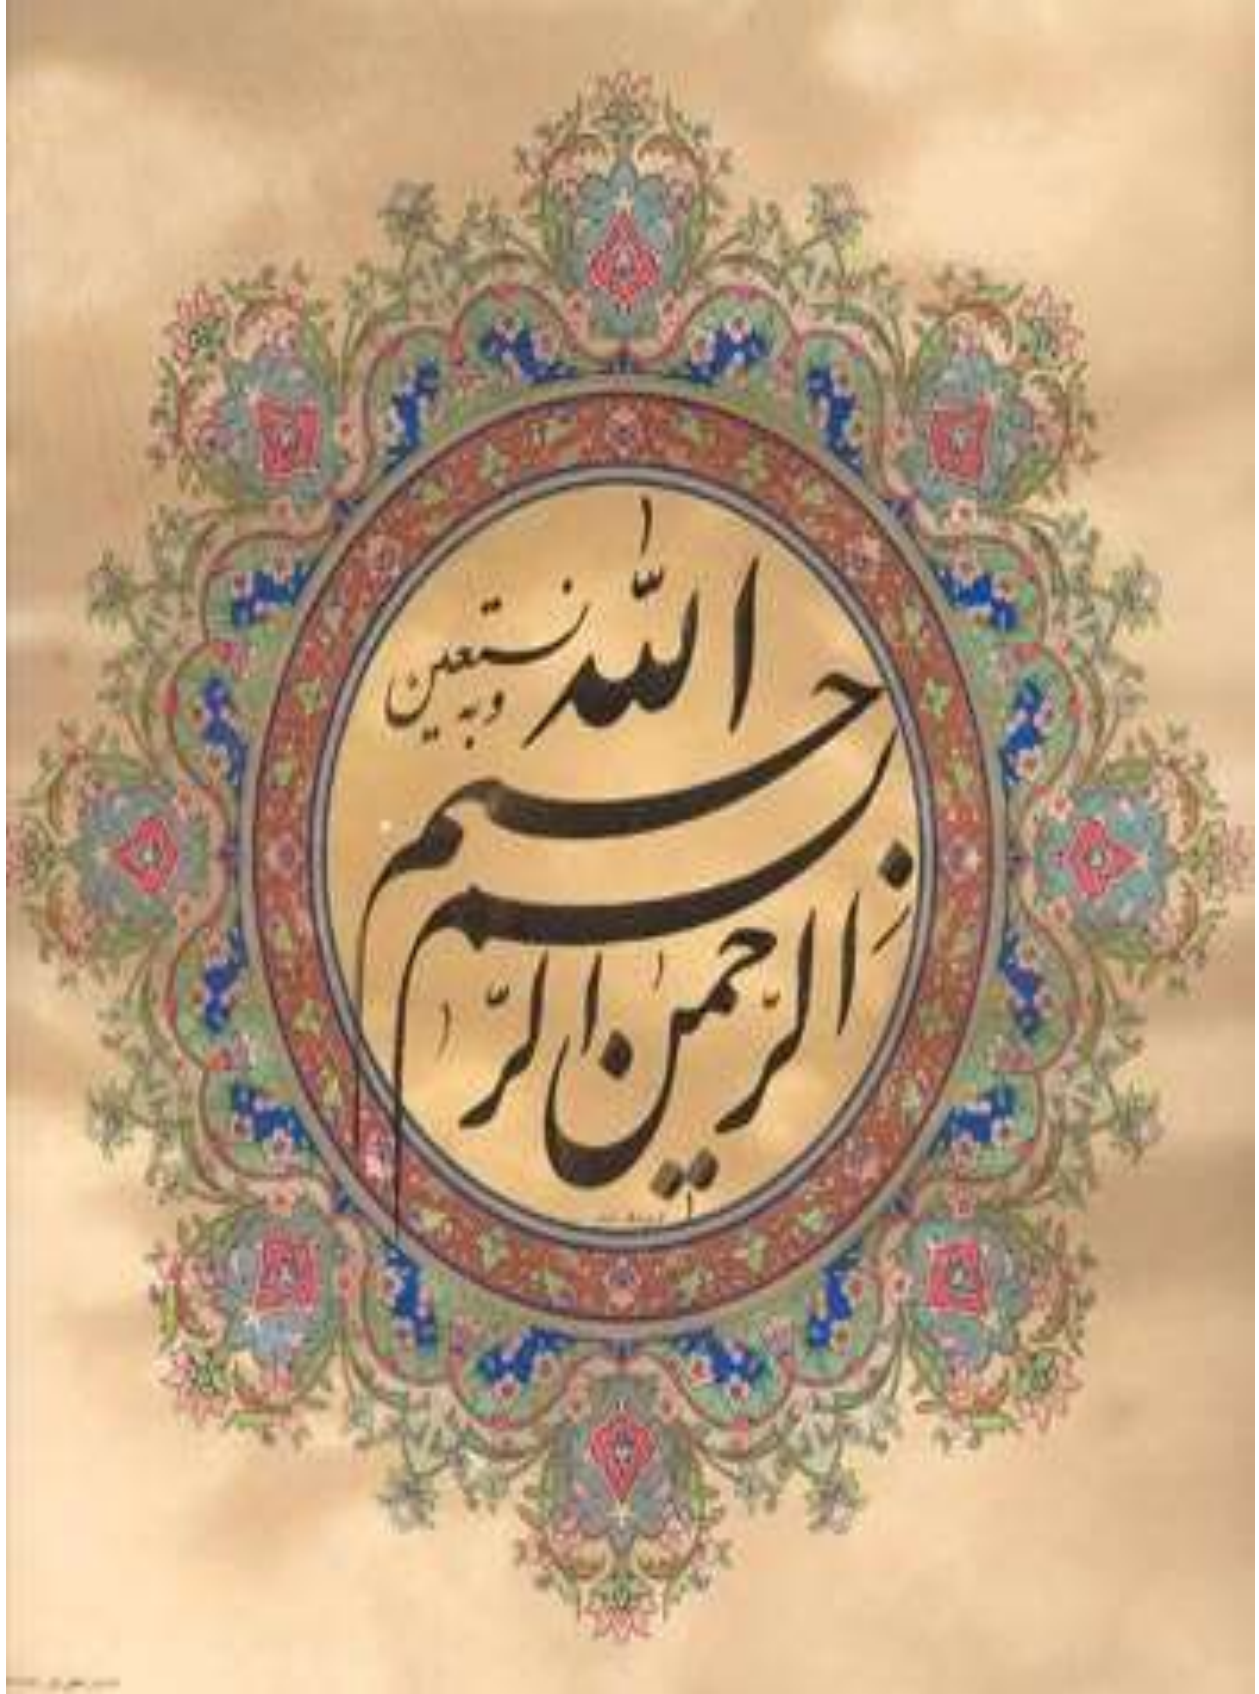 بسم الله الرّحمن الرّحيم
وبه نستعين